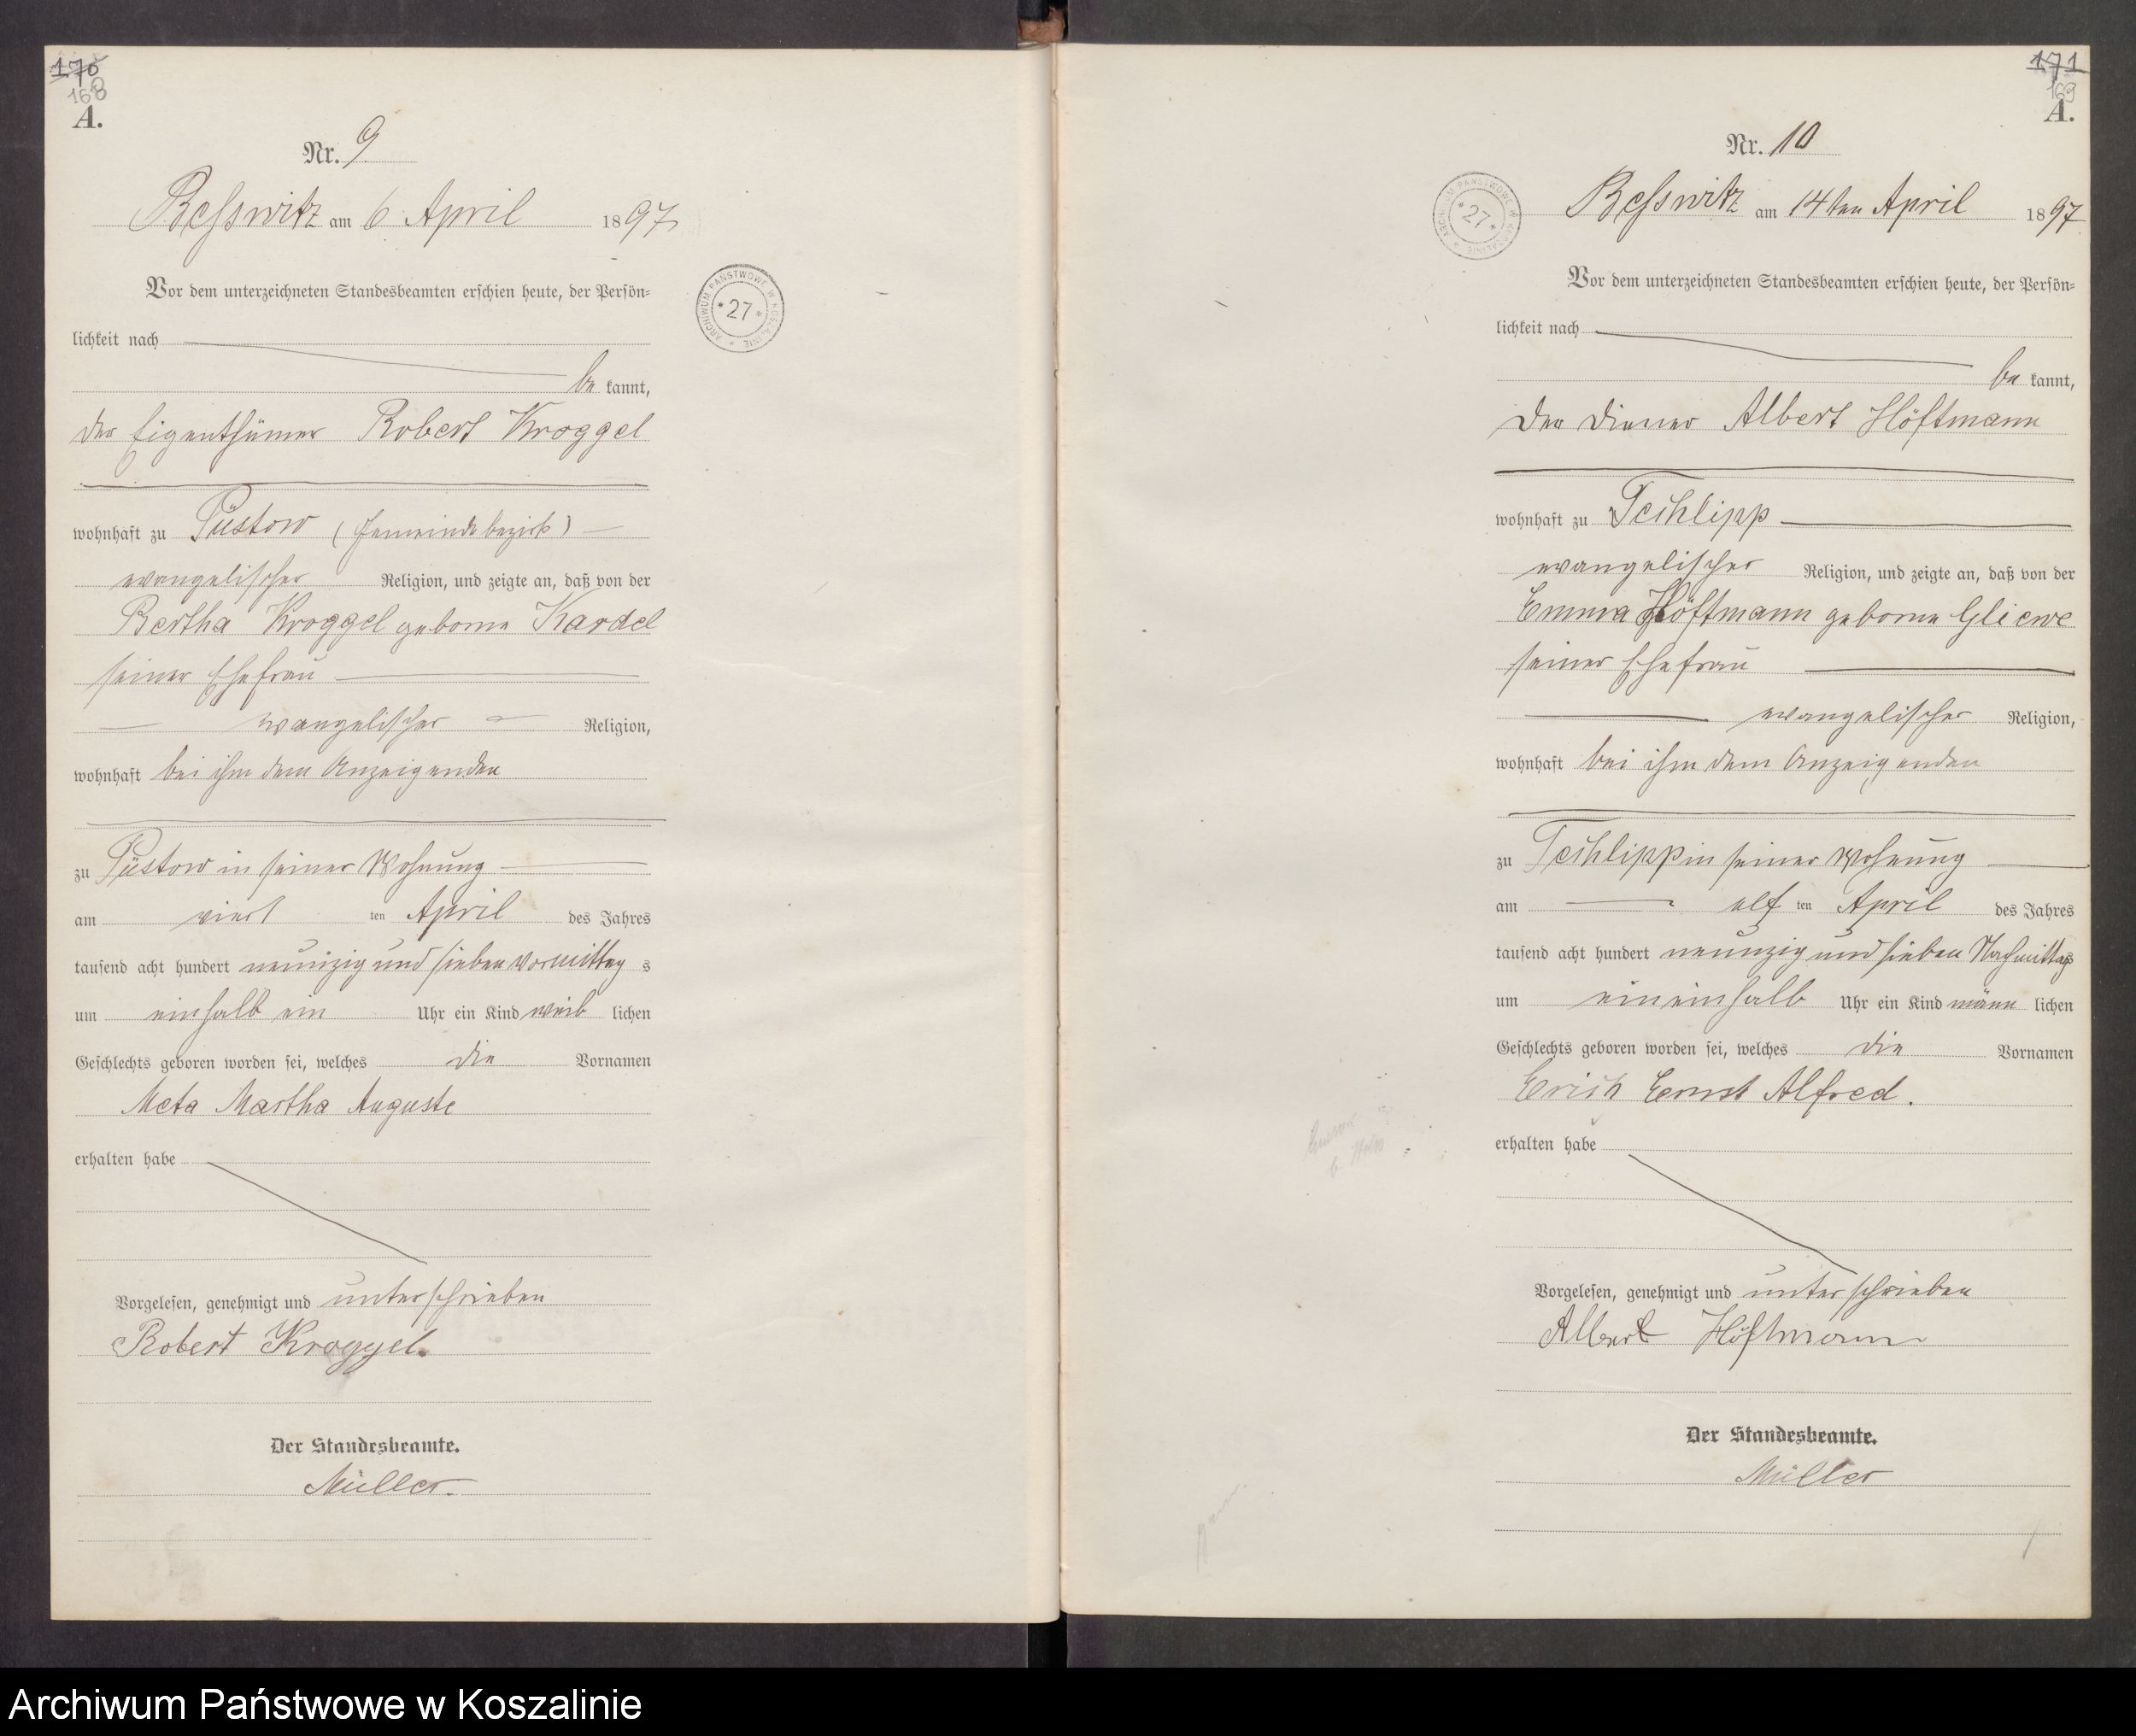 170
168
A.
Nr. 9
Besswitz am 6 April 1897
Vor dem unterzeichneten Standesbeamten erschien heute, der Persön-
lichkeit nach
be kannt,
der Eigenthümer Robert Kroggel
wohnhaft zu Püstow (Gemeindebezirk)
evangelischer Religion, und zeigte an, daß von der
Bertha Kroggel geborne Kardel
seiner Ehefrau
evangelischer Religion,
wohnhaft bei ihm dem Anzeigenden
zu Püstow in seiner Wohnung
am viert ten April des Jahres
tausend acht hundert neunzig und sieben Vormittag s
um einhalb ein Uhr ein Kind weib lichen
Geschlechts geboren worden sei, welches die Vornamen
Meta Martha Auguste
erhalten habe
Vorgelesen, genehmigt und unterschrieben
Robert Kroggel.
Der Standesbeamte.
Müller.
ARCHIWUM PAŃSTWOWE W KOSZALINIE
* 27 *
171
169
A.
Nr. 10
ARCHIWUM PAŃSTWOWE W KOSZALINIE
* 27 *
Besswitz am 14ten April 1897
Vor dem unterzeichneten Standesbeamten erschien heute, der Persön-
lichkeit nach
be kannt,
Der Diener Albert Höftmann
wohnhaft zu Techlipp
evangelischer Religion, und zeigte an, daß von der
Emma Höftmann geborne Gliewe
seiner Ehefrau
evangelischer Religion,
wohnhaft bei ihm dem Anzeigenden
zu Techlipp in seiner Wohnung
am elf ten April des Jahres
tausend acht hundert neunzig und sieben Nachmittags
um eineinhalb Uhr ein Kind männ lichen
Geschlechts geboren worden sei, welches die Vornamen
Erich Ernst Alfred.
erhalten habe
Vorgelesen, genehmigt und unterschrieben
Albert Höftmann
Der Standesbeamte.
Müller
Archiwum Państwowe w Koszalinie